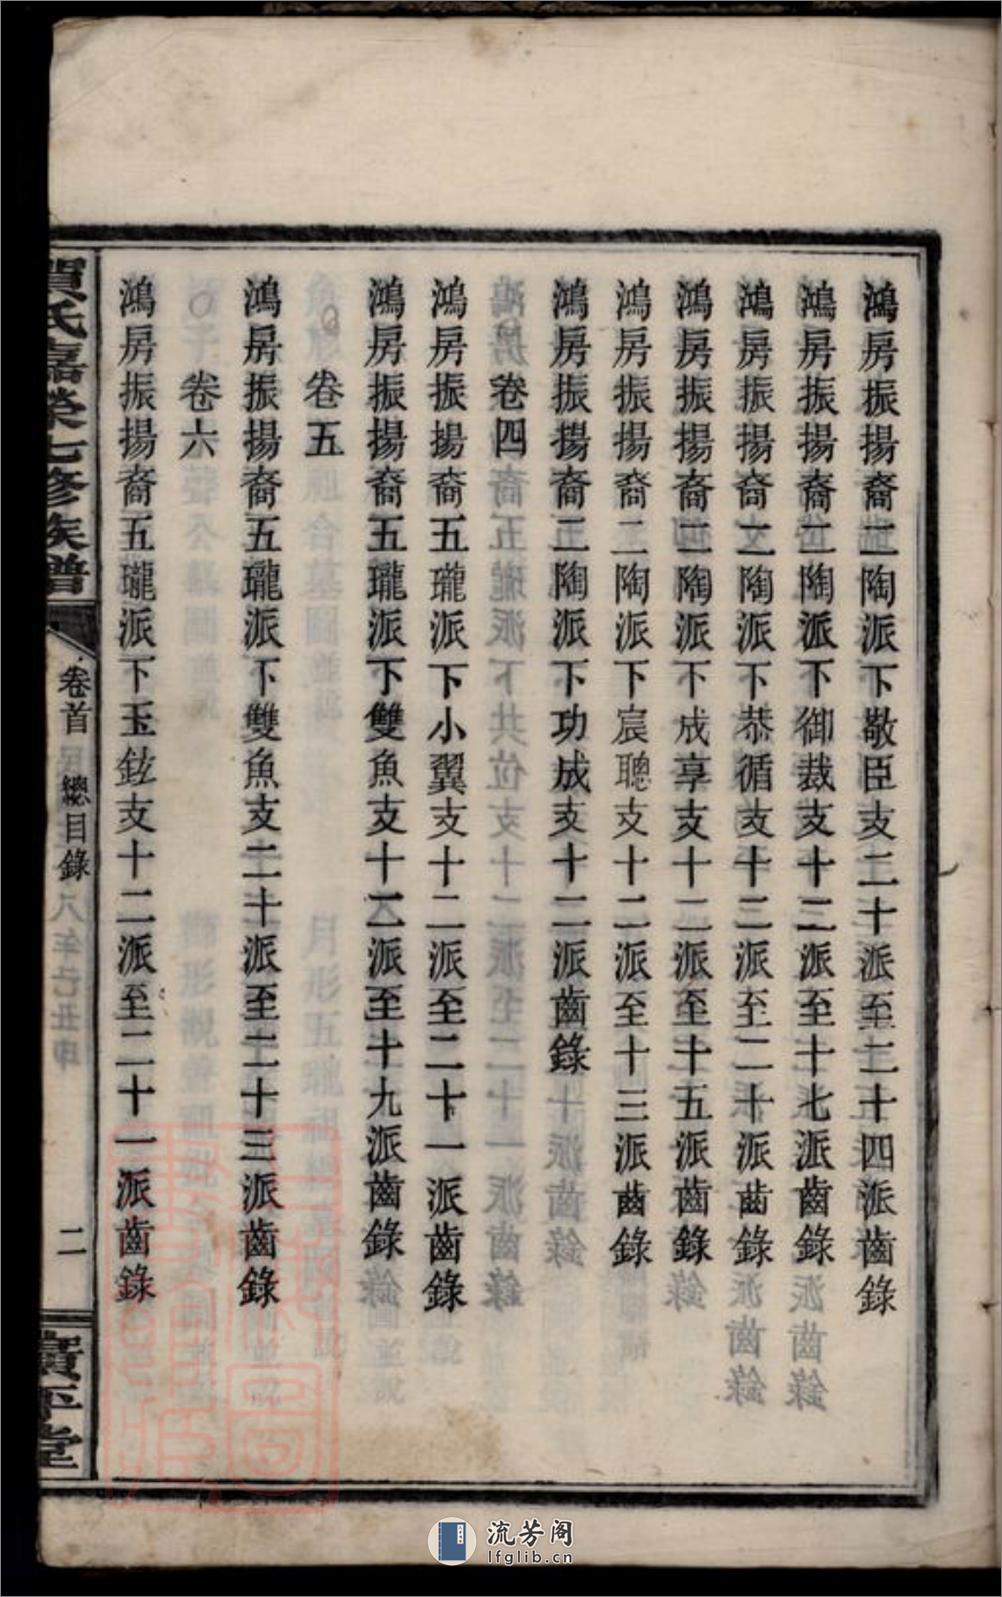 鴻房振揚裔二陶派下敬臣支二十派至二十四派齒錄
鴻房振揚裔二陶派下御裁支十三派至十七派齒錄
鴻房振揚裔二陶派下恭循支十三派至二十派齒錄
鴻房振揚裔二陶派下成享支十二派至十五派齒錄
鴻房振揚裔二陶派下宸聰支十二派至十三派齒錄
鴻房振揚裔二陶派下功成支十二派齒錄
卷四
鴻房振揚裔五瓏派下小翼支十二派至二十一派齒錄
鴻房振揚裔五瓏派下雙魚支十二派至十九派齒錄
卷五
鴻房振揚裔五瓏派下雙魚支二十派至二十三派齒錄
卷六
鴻房振揚裔五瓏派下玉鉉支十二派至二十一派齒錄
賀氏嘉榮七修族譜
卷首 總目錄
二
廣平堂
流芳阁
lfglib.cn